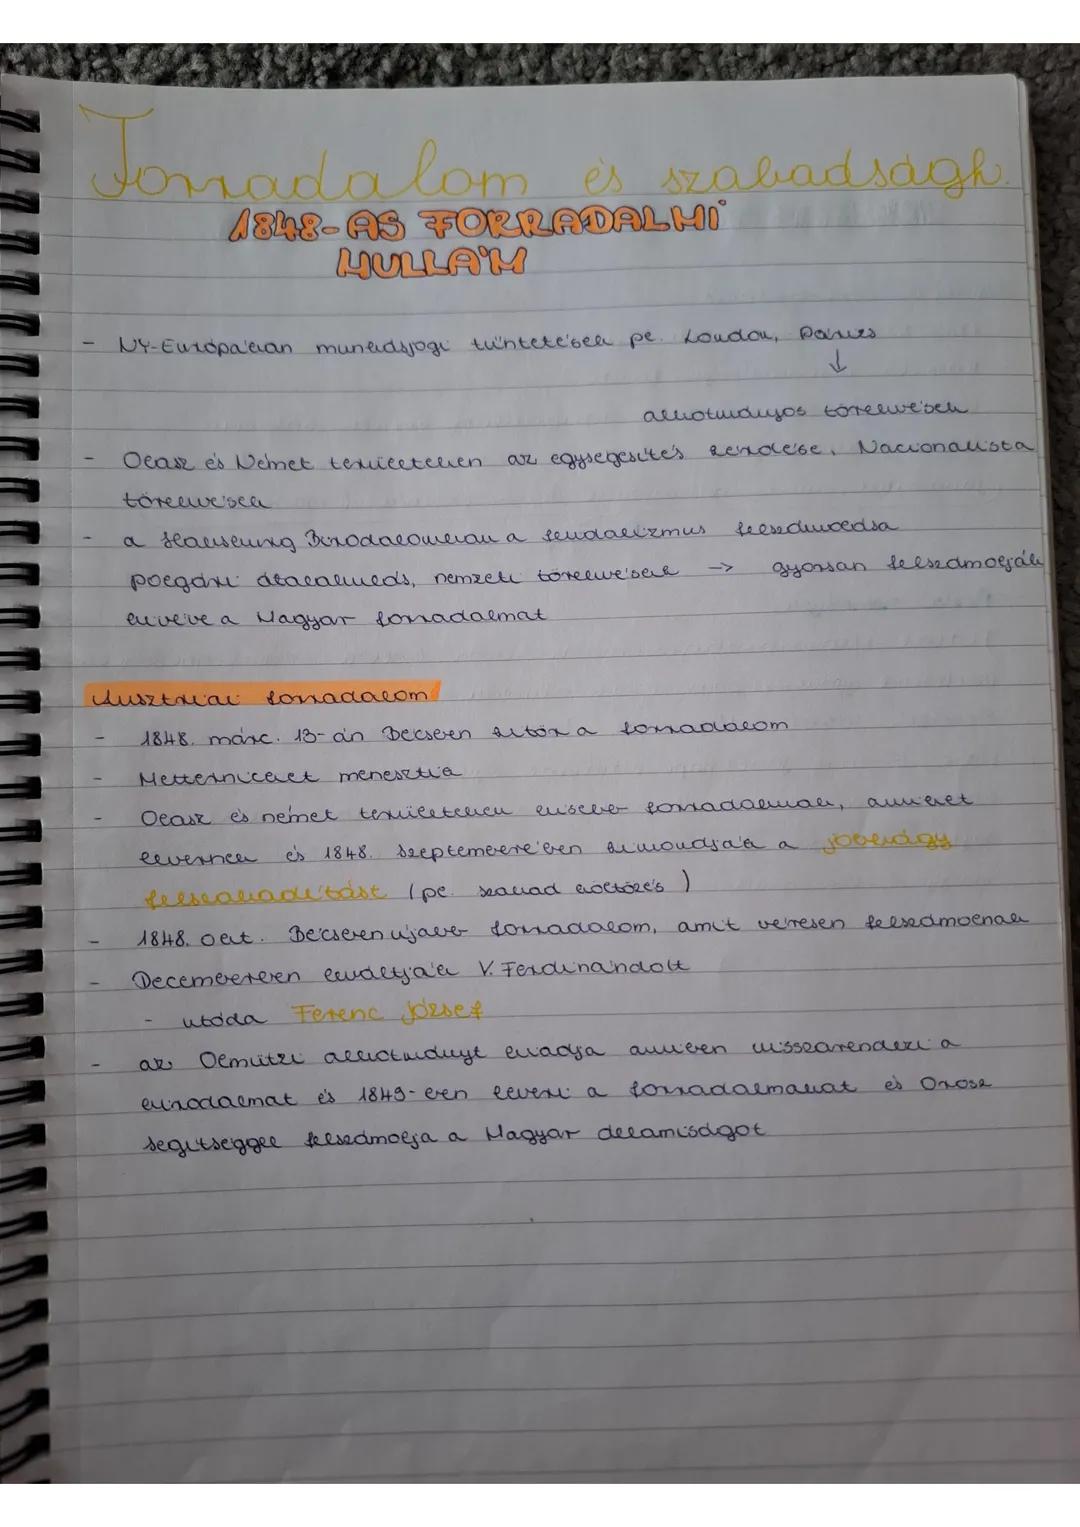 Forradalom és szabadságh.
1848-AS FORRADALMI
HULLÁM
- NY-Európában munkásjogi tüntetések pl. London, Párizs
↓
alkotmányos törekvések
- Olasz és Német területeken az egységesítés kérdése. Nacionalista
törekvések
- a Habsburg Birodalomban a feudalizmus felszámolása
polgári átalakulás, nemzeti törekvések -> gyorsan felszámolják
kivéve a Magyar forradalmat
Ausztriai forradalom
- 1848. márc. 13-án Bécsben kitör a forradalom
- Metternichet menesztik
- Olasz és német területeken kisebb forradalmak, amiket
levernek és 1848. szeptemberében kimondják a jobbágy
felszabadítást (pl. szabad költözés)
- 1848. okt. Bécsben újabb forradalom, amit véresen felszámolnak
- Decemberben lemondatják V. Ferdinándot
- utóda Ferenc József
- az Olmützi alkotmányt kiadja amiben visszarendezi a
birodalmat és 1849-ben leveri a forradalmakat és Orosz
segítséggel felszámolja a Magyar államiságot